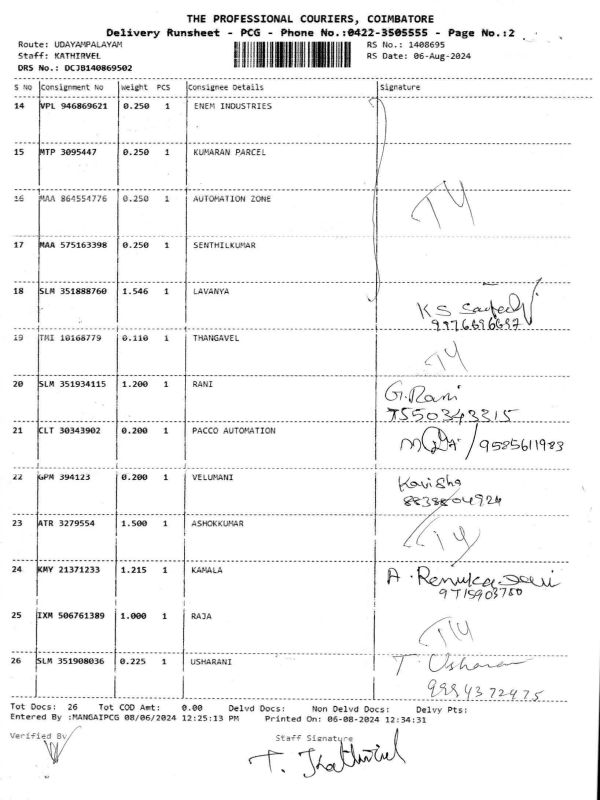 THE PROFESSIONAL COURIERS, COIMBATORE
Delivery Runsheet - PCG - Phone No.:0422-3505555 - Page No.:2
Route: UDAYAMPALAYAM RS No.: 1408695
Staff: KATHIRVEL RS Date: 06-Aug-2024
DRS No.: DCJB140869502
S No Consignment No Weight PCS Consignee Details Signature
14 VPL 946869621 0.250 1 ENEM INDUSTRIES
15 MTP 3095447 0.250 1 KUMARAN PARCEL
16 MAA 864554776 0.250 1 AUTOMATION ZONE
17 MAA 575163398 0.250 1 SENTHILKUMAR
18 SLM 351888760 1.546 1 LAVANYA
KS
19 TMI 10168779 0.110 1 THANGAVEL
20 SLM 351934115 1.200 1 RANI
G.Rani
7550343315
21 CLT 30343902 0.200 1 PACCO AUTOMATION
9585611983
22 GPM 394123 0.200 1 VELUMANI
Kavisha
8838804924
23 ATR 3279554 1.500 1 ASHOKKUMAR
24 KMY 21371233 1.215 1 KAMALA
A. Renuka Devi
9715903780
25 IXM 506761389 1.000 1 RAJA
26 SLM 351908036 0.225 1 USHARANI
T. Usharani
9994372475
Tot Docs: 26 Tot COD Amt: 0.00 Delvd Docs: Non Delvd Docs: Delvy Pts:
Entered By :MANGAIPCG 08/06/2024 12:25:13 PM Printed On: 06-08-2024 12:34:31
Verified By Staff Signature
T. Kathirvel